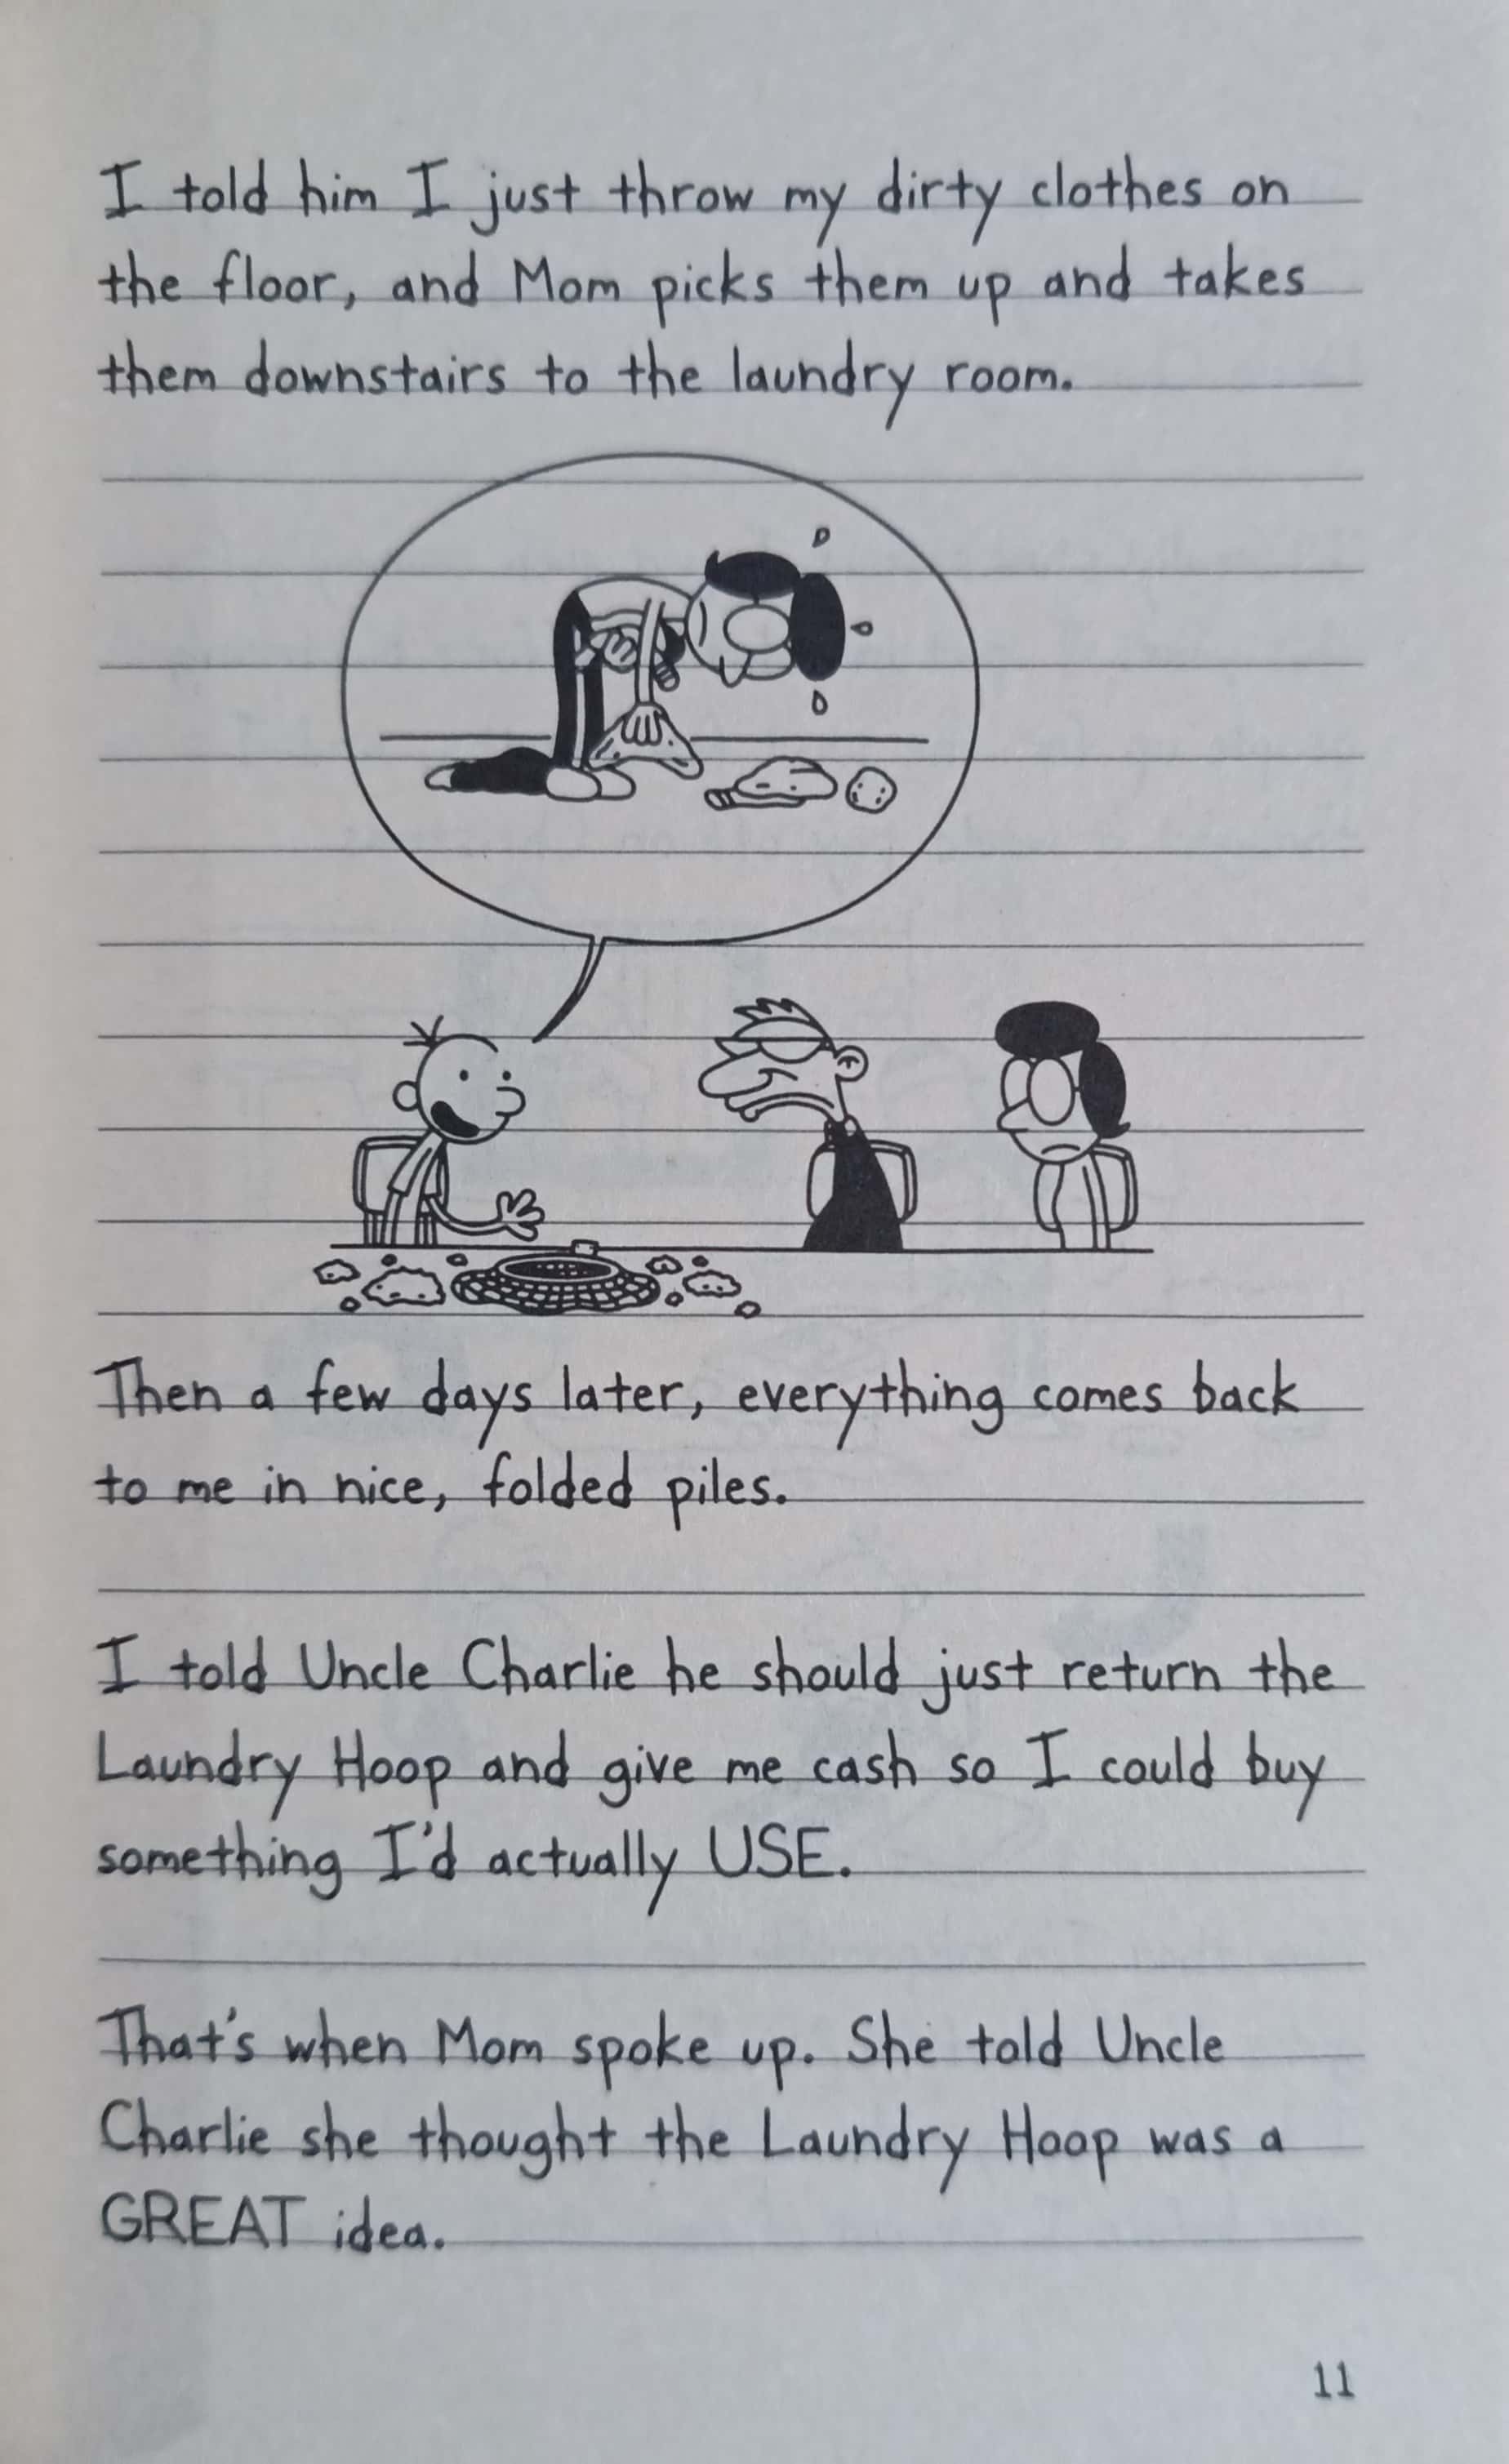 I told him I just throw my dirty clothes on
the floor, and Mom picks them up and takes
them downstairs to the laundry room.
Then a few days later, everything comes back
to me in nice, folded piles.
I told Uncle Charlie he should just return the
Laundry Hoop and give me cash so I could buy
something I'd actually USE.
That's when Mom spoke up. She told Uncle
Charlie she thought the Laundry Hoop was a
GREAT idea.
11